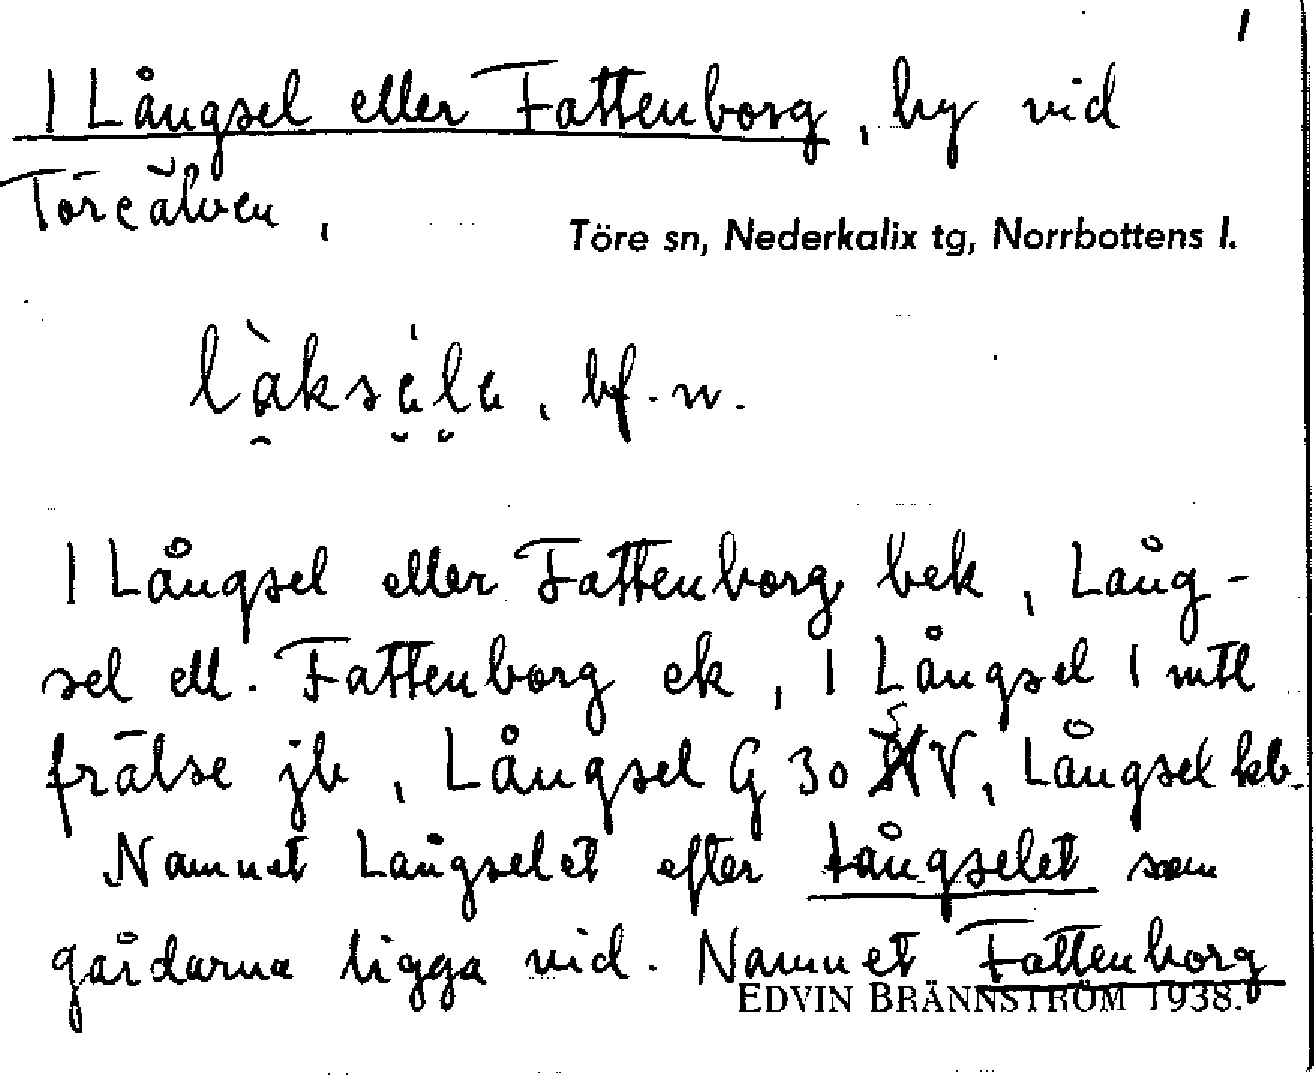 1
1 Långsel eller Fattenborg, by vid
Töreälven,
Töre sn, Nederkalix tg, Norrbottens l.
bf. n.
1 Långsel eller Fattenborg bek, Lång-
sel ell. Fattenborg ek, 1 Långsel 1 mtl
frälse jb, Långsel G 30 V, Långsel kb.
Namnet Långselet efter Långselet som
gårdarna ligga vid. Namnet Fattenborg
EDVIN BRÄNNSTRÖM 1938.